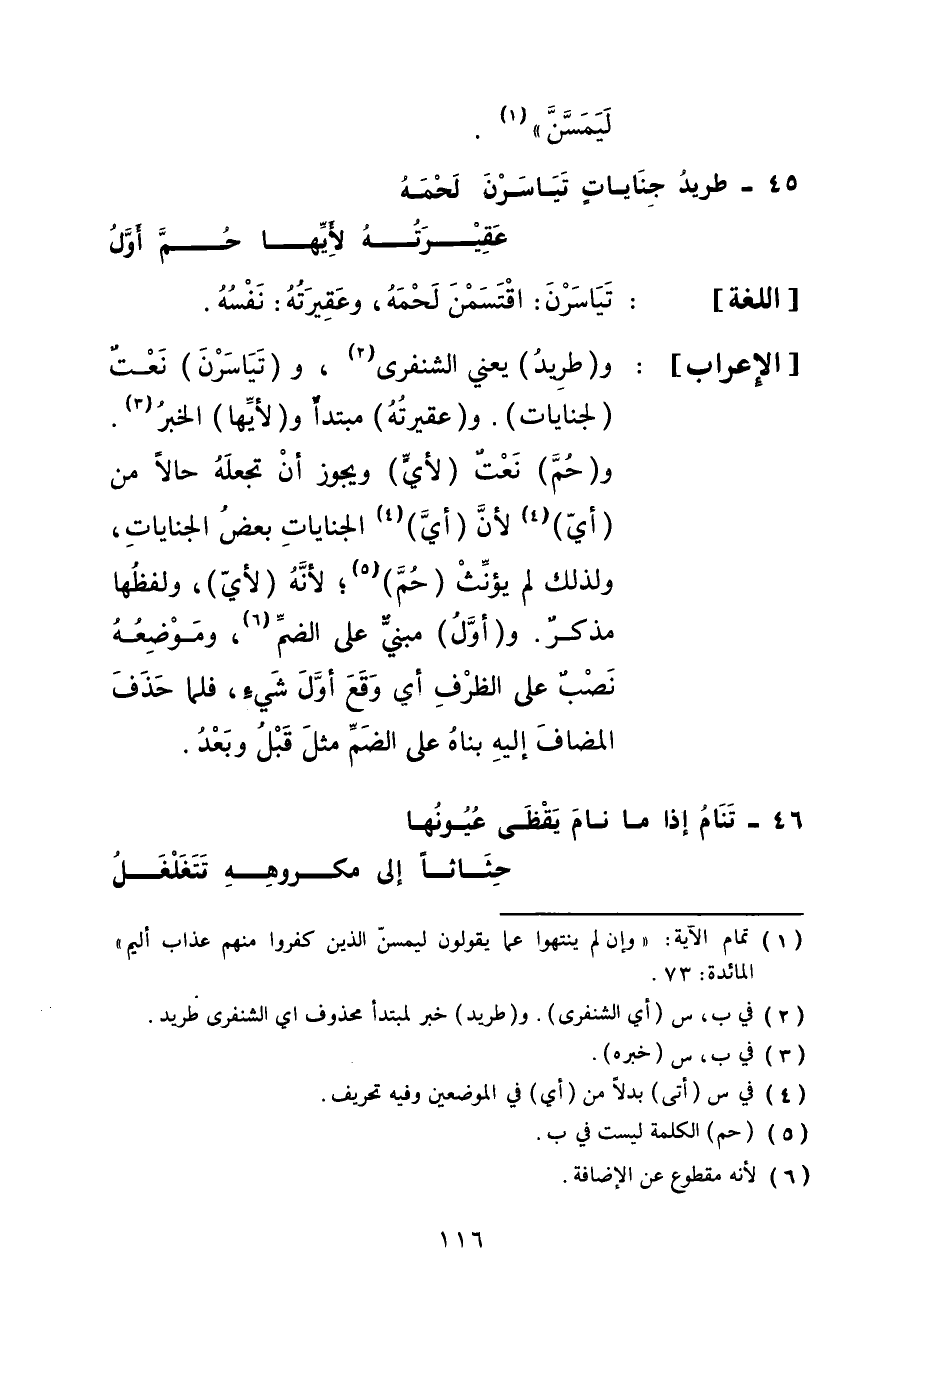 لَيَمَسَّنَّ» (١) .
٤٥ - طريدُ جِنَايـاتٍ تَيَـاسَـرْنَ لَحْمَـهُ
عَقِيْـــرَتُـــهُ لأَيِّهـــا حُـــمَّ أَوَّلُ
[اللغة] : تَيَاسَرْنَ: اقْتَسَمْنَ لَحْمَهُ، وعَقِيرَتُهُ: نَفْسُهُ.
[الإعراب] : و(طرِيدُ) يعني الشنفرى(٢) ، و (تَيَاسَرْنَ) نَعْـتٌ
(لجنايات). و(عقيرتُهُ) مبتدأ و(لأيِّها) الخبرُ(٣).
و(حُمَّ) نَعْتٌ (لأيٍّ) ويجوز أنْ تجعلَهُ حالاً من
(أيّ)(٤) لأنَّ (أيَّ)(٤) الجناياتِ بعضُ الجناياتِ،
ولذلك لم يؤنِّثْ (حُمَّ)(٥)؛ لأنَّهُ (لأيّ)، ولفظُها
مذكـرٌ. و(أوَّلُ) مبنيٌّ على الضمِّ(٦)، ومَـوْضِعُـهُ
نَصْبٌ على الظرْفِ أي وَقَعَ أوَّلَ شَيءٍ، فلما حَذَفَ
المضافَ إليهِ بناهُ على الضَمِّ مثلَ قَبْلُ وبَعْدُ.
٤٦ - تَنَامُ إذا مـا نـامَ يَقْظَـى عُيُـونُهـا
حِثَــاثــاً إلى مكـــروهِـــهِ تَتَغَلْغَـــلُ
(١) تمام الآية: «وإن لم ينتهوا عما يقولون ليمسنّ الذين كفروا منهم عذاب أليم»
المائدة: ٧٣ .
(٢) في ب، س (أي الشنفرى). و(طريد) خبر لمبتدأ محذوف اي الشنفرى طريد.
(٣) في ب، س (خبره).
(٤) في س (أتى) بدلاً من (أي) في الموضعين وفيه تحريف.
(٥) (حم) الكلمة ليست في ب.
(٦) لأنه مقطوع عن الإضافة.
١١٦